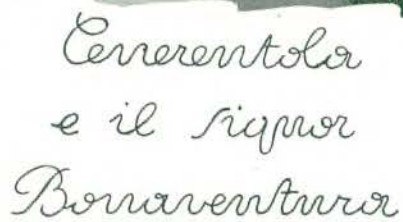 Cenerentola
e il signor
Bonaventura